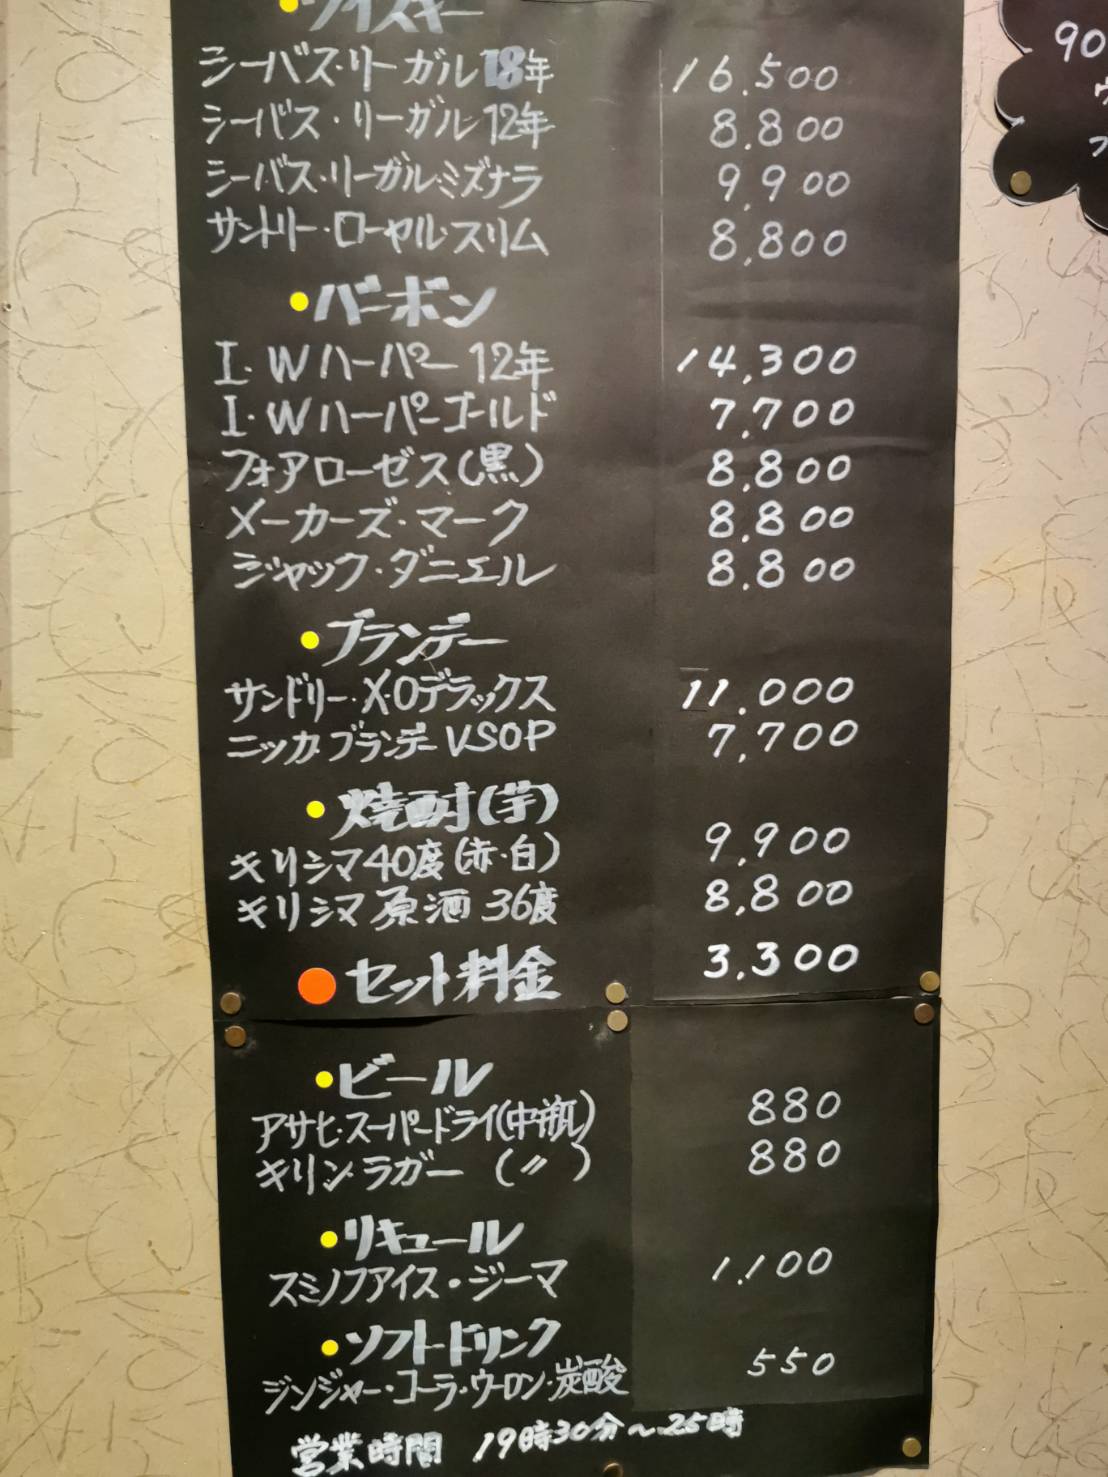 ウイスキー
シーバス・リーガル 18年 16.500
シーバス・リーガル 12年 8.800
シーバス・リーガル・ミズナラ 9,900
サントリー・ローヤル・スリム 8,800
バーボン
I・Wハーパー 12年 14,300
I・Wハーパーゴールド 7,700
フォアローゼス(黒) 8,800
メーカーズ・マーク 8,800
ジャック・ダニエル 8.800
ブランデー
サンドリー・X・Oデラックス 11.000
ニッカブランデーVSOP 7,700
焼酎(芋)
キリシマ40度(赤・白) 9,900
キリシマ原酒 36度 8,800
セット料金 3.300
ビール
アサヒ・スーパードライ(中瓶) 880
キリンラガー (〃) 880
リキュール
スミノフアイス・ジーマ 1,100
ソフトドリンク
ジンジャー・コーラ・ウーロン・炭酸 550
営業時間 19時30分〜25時
90